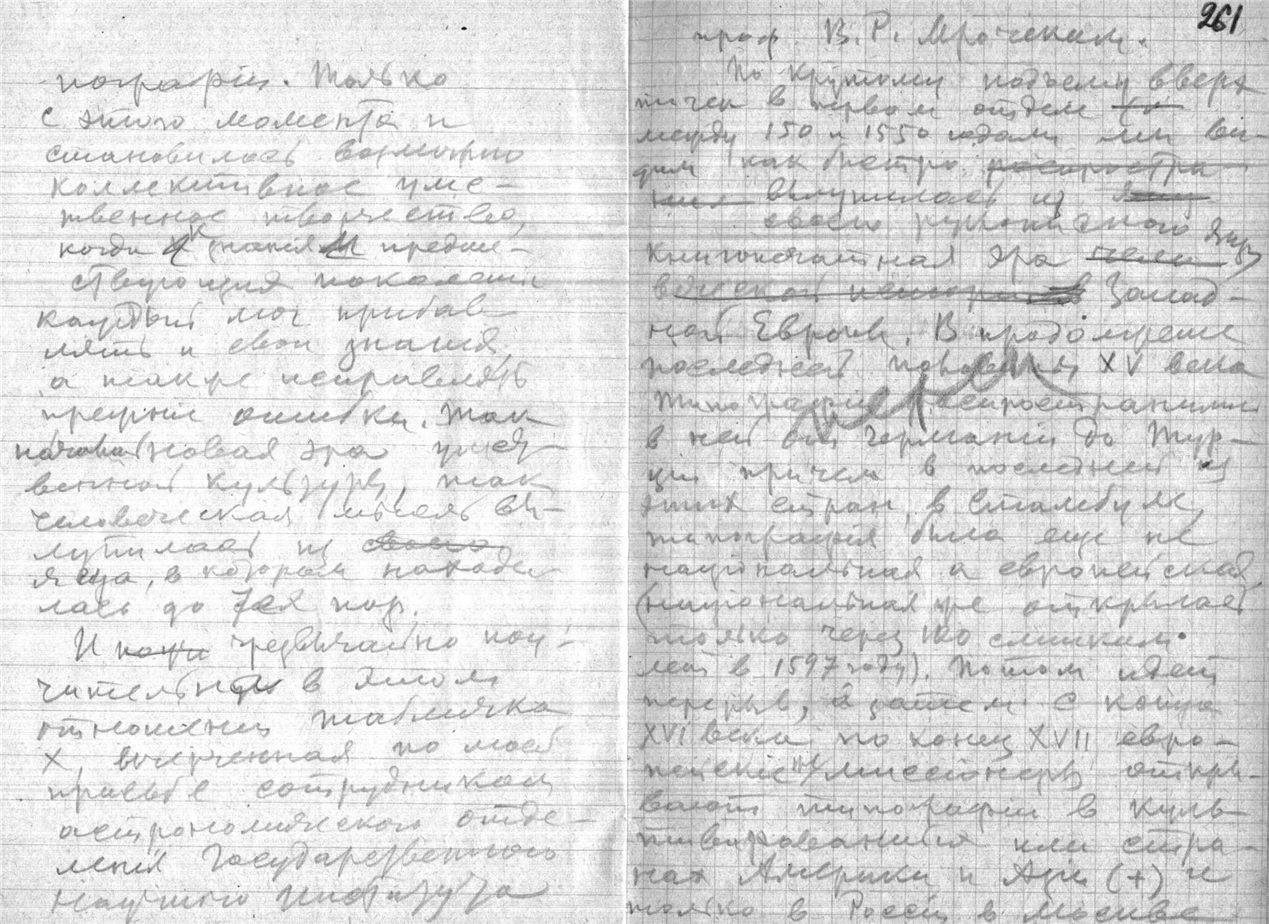 пографіи. Только
с этого момента и
становилось возможно
коллективное умс-
твенное творчество,
когда к знаніям предше-
ствующия поколеній
каждый мог прибав-
лять и свои знанія,
а также исправлять
прежніе ошибки. Так
новая эра умст-
венной культуры, так
человеческая мысль вы-
лупилась из своего
яйца, в котором находи-
лась до тех пор.
И чрезвычайно поу-
чительна в этом
отношеніи табличка
X, вычерченная по моей
просьбе сотрудником
астрономического отде-
ленія Государственного
Научного Института
261
проф. В. Р. Мрочеким.
По крутому подъему вверх
точек в первом отделе
между 150 и 1550 годами мы ви-
дим как быстро распростра-
вылупилась из
своего рукописного яйца
книгопечатная эра
Запад-
ной Европы. В продолжение
последней половины XV века
типографіи распространились
в ней от Германіи до Тур-
ціи причем в последней из
этих стран, в Стамбуле,
типографія была еще не
національная а европейская
(національная же открылась
только через 100 слишком
лет в 1597 году). Потом идет
перерыв, а затем с конца
XVI века по конец XVII евро-
пейскіе миссіонеры откры-
вают типографіи в куль-
тивированных ими стра-
нах Америки и Азіи (+) и
только в Россіи в Москве